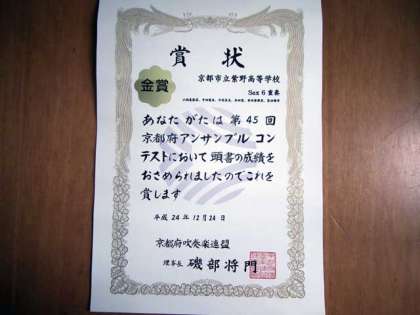 賞状
金賞
京都市立紫野高等学校
Sax6重奏
あなたがたは第45回
京都府アンサンブルコン
テストにおいて頭書の成績を
おさめられましたのでこれを
賞します
平成24年12月24日
京都府吹奏楽連盟
理事長 磯部将門